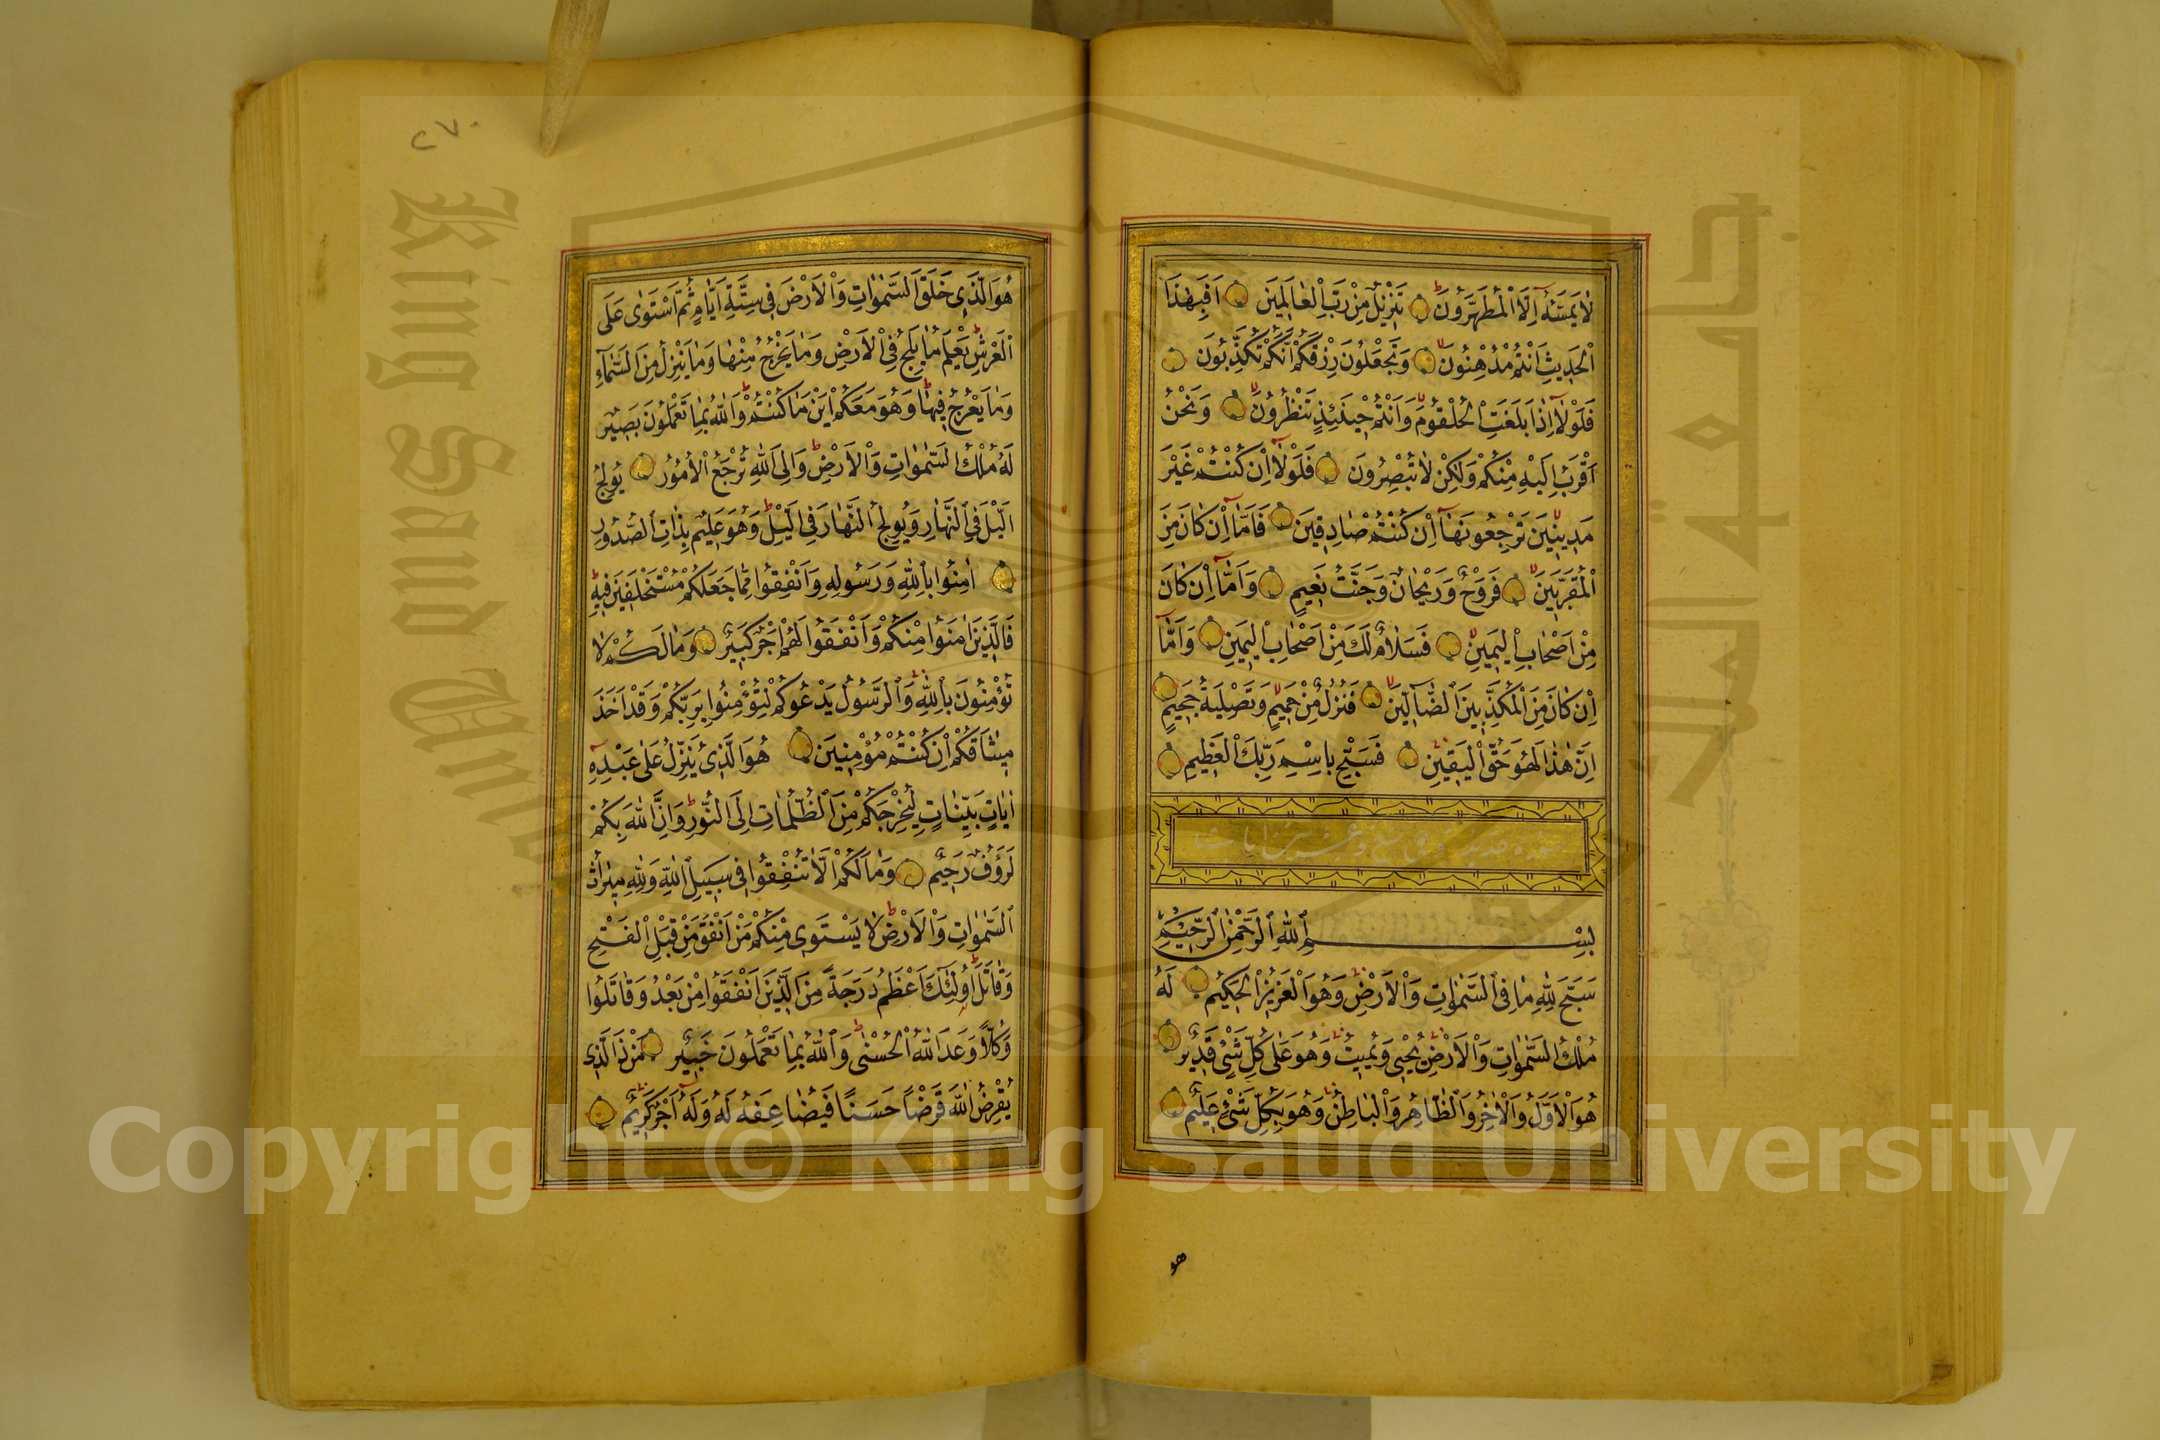 لَا يَمَسُّهُٓ اِلَّا الْمُطَهَّرُونَ تَنْزِيلٌ مِنْ رَبِّ الْعَالَمِينَ اَفَبِهٰذَا
الْحَدِيثِ اَنْتُمْ مُدْهِنُونَ وَتَجْعَلُونَ رِزْقَكُمْ اَنَّكُمْ تُكَذِّبُونَ
فَلَوْلَٓا اِذَا بَلَغَتِ الْحُلْقُومَ وَاَنْتُمْ حِينَئِذٍ تَنْظُرُونَ وَنَحْنُ
اَقْرَبُ اِلَيْهِ مِنْكُمْ وَلٰكِنْ لَا تُبْصِرُونَ فَلَوْلَٓا اِنْ كُنْتُمْ غَيْرَ
مَدِينِينَ تَرْجِعُونَهَٓا اِنْ كُنْتُمْ صَادِقِينَ فَاَمَّٓا اِنْ كَانَ مِنَ
الْمُقَرَّبِينَ فَرَوْحٌ وَرَيْحَانٌ وَجَنَّتُ نَعِيمٍ وَاَمَّٓا اِنْ كَانَ
مِنْ اَصْحَابِ الْيَمِينِ فَسَلَامٌ لَكَ مِنْ اَصْحَابِ الْيَمِينِ وَاَمَّٓا
اِنْ كَانَ مِنَ الْمُكَذِّبِينَ الضَّٓالِّينَ فَنُزُلٌ مِنْ حَمِيمٍ وَتَصْلِيَةُ جَحِيمٍ
اِنَّ هٰذَا لَهُوَ حَقُّ الْيَقِينِ فَسَبِّحْ بِاسْمِ رَبِّكَ الْعَظِيمِ
سورة حديد وهي تسع وعشرين ايات
بِسْمِ اللّٰهِ الرَّحْمٰنِ الرَّحِيمِ
سَبَّحَ لِلّٰهِ مَا فِي السَّمٰوَاتِ وَالْاَرْضِ وَهُوَ الْعَزِيزُ الْحَكِيمُ لَهُ
مُلْكُ السَّمٰوَاتِ وَالْاَرْضِ يُحْيِي وَيُمِيتُ وَهُوَ عَلٰى كُلِّ شَيْءٍ قَدِيرٌ
هُوَ الْاَوَّلُ وَالْاٰخِرُ وَالظَّاهِرُ وَالْبَاطِنُ وَهُوَ بِكُلِّ شَيْءٍ عَلِيمٌ
هو
٢٧٠
هُوَ الَّذِي خَلَقَ السَّمٰوَاتِ وَالْاَرْضَ فِي سِتَّةِ اَيَّامٍ ثُمَّ اسْتَوٰى عَلَى
الْعَرْشِ يَعْلَمُ مَا يَلِجُ فِي الْاَرْضِ وَمَا يَخْرُجُ مِنْهَا وَمَا يَنْزِلُ مِنَ السَّمَٓاءِ
وَمَا يَعْرُجُ فِيهَا وَهُوَ مَعَكُمْ اَيْنَ مَا كُنْتُمْ وَاللّٰهُ بِمَا تَعْمَلُونَ بَصِيرٌ
لَهُ مُلْكُ السَّمٰوَاتِ وَالْاَرْضِ وَاِلَى اللّٰهِ تُرْجَعُ الْاُمُورُ يُولِجُ
الَّيْلَ فِي النَّهَارِ وَيُولِجُ النَّهَارَ فِي الَّيْلِ وَهُوَ عَلِيمٌ بِذَاتِ الصُّدُورِ
اٰمِنُوا بِاللّٰهِ وَرَسُولِهِ وَاَنْفِقُوا مِمَّا جَعَلَكُمْ مُسْتَخْلَفِينَ فِيهِ
فَالَّذِينَ اٰمَنُوا مِنْكُمْ وَاَنْفَقُوا لَهُمْ اَجْرٌ كَبِيرٌ وَمَا لَكُمْ لَا
تُؤْمِنُونَ بِاللّٰهِ وَالرَّسُولُ يَدْعُوكُمْ لِتُؤْمِنُوا بِرَبِّكُمْ وَقَدْ اَخَذَ
مِيثَاقَكُمْ اِنْ كُنْتُمْ مُؤْمِنِينَ هُوَ الَّذِي يُنَزِّلُ عَلٰى عَبْدِهِٓ
اٰيَاتٍ بَيِّنَاتٍ لِيُخْرِجَكُمْ مِنَ الظُّلُمَاتِ اِلَى النُّورِ وَاِنَّ اللّٰهَ بِكُمْ
لَرَؤُفٌ رَحِيمٌ وَمَا لَكُمْ اَلَّا تُنْفِقُوا فِي سَبِيلِ اللّٰهِ وَلِلّٰهِ مِيرَاثُ
السَّمٰوَاتِ وَالْاَرْضِ لَا يَسْتَوِي مِنْكُمْ مَنْ اَنْفَقَ مِنْ قَبْلِ الْفَتْحِ
وَقَاتَلَ اُولٰٓئِكَ اَعْظَمُ دَرَجَةً مِنَ الَّذِينَ اَنْفَقُوا مِنْ بَعْدُ وَقَاتَلُوا
وَكُلًّا وَعَدَ اللّٰهُ الْحُسْنٰى وَاللّٰهُ بِمَا تَعْمَلُونَ خَبِيرٌ مَنْ ذَا الَّذِي
يُقْرِضُ اللّٰهَ قَرْضًا حَسَنًا فَيُضَاعِفَهُ لَهُ وَلَهُٓ اَجْرٌ كَرِيمٌ
King Saud University
جامعة الملك سعود
1957
Copyright © King Saud University